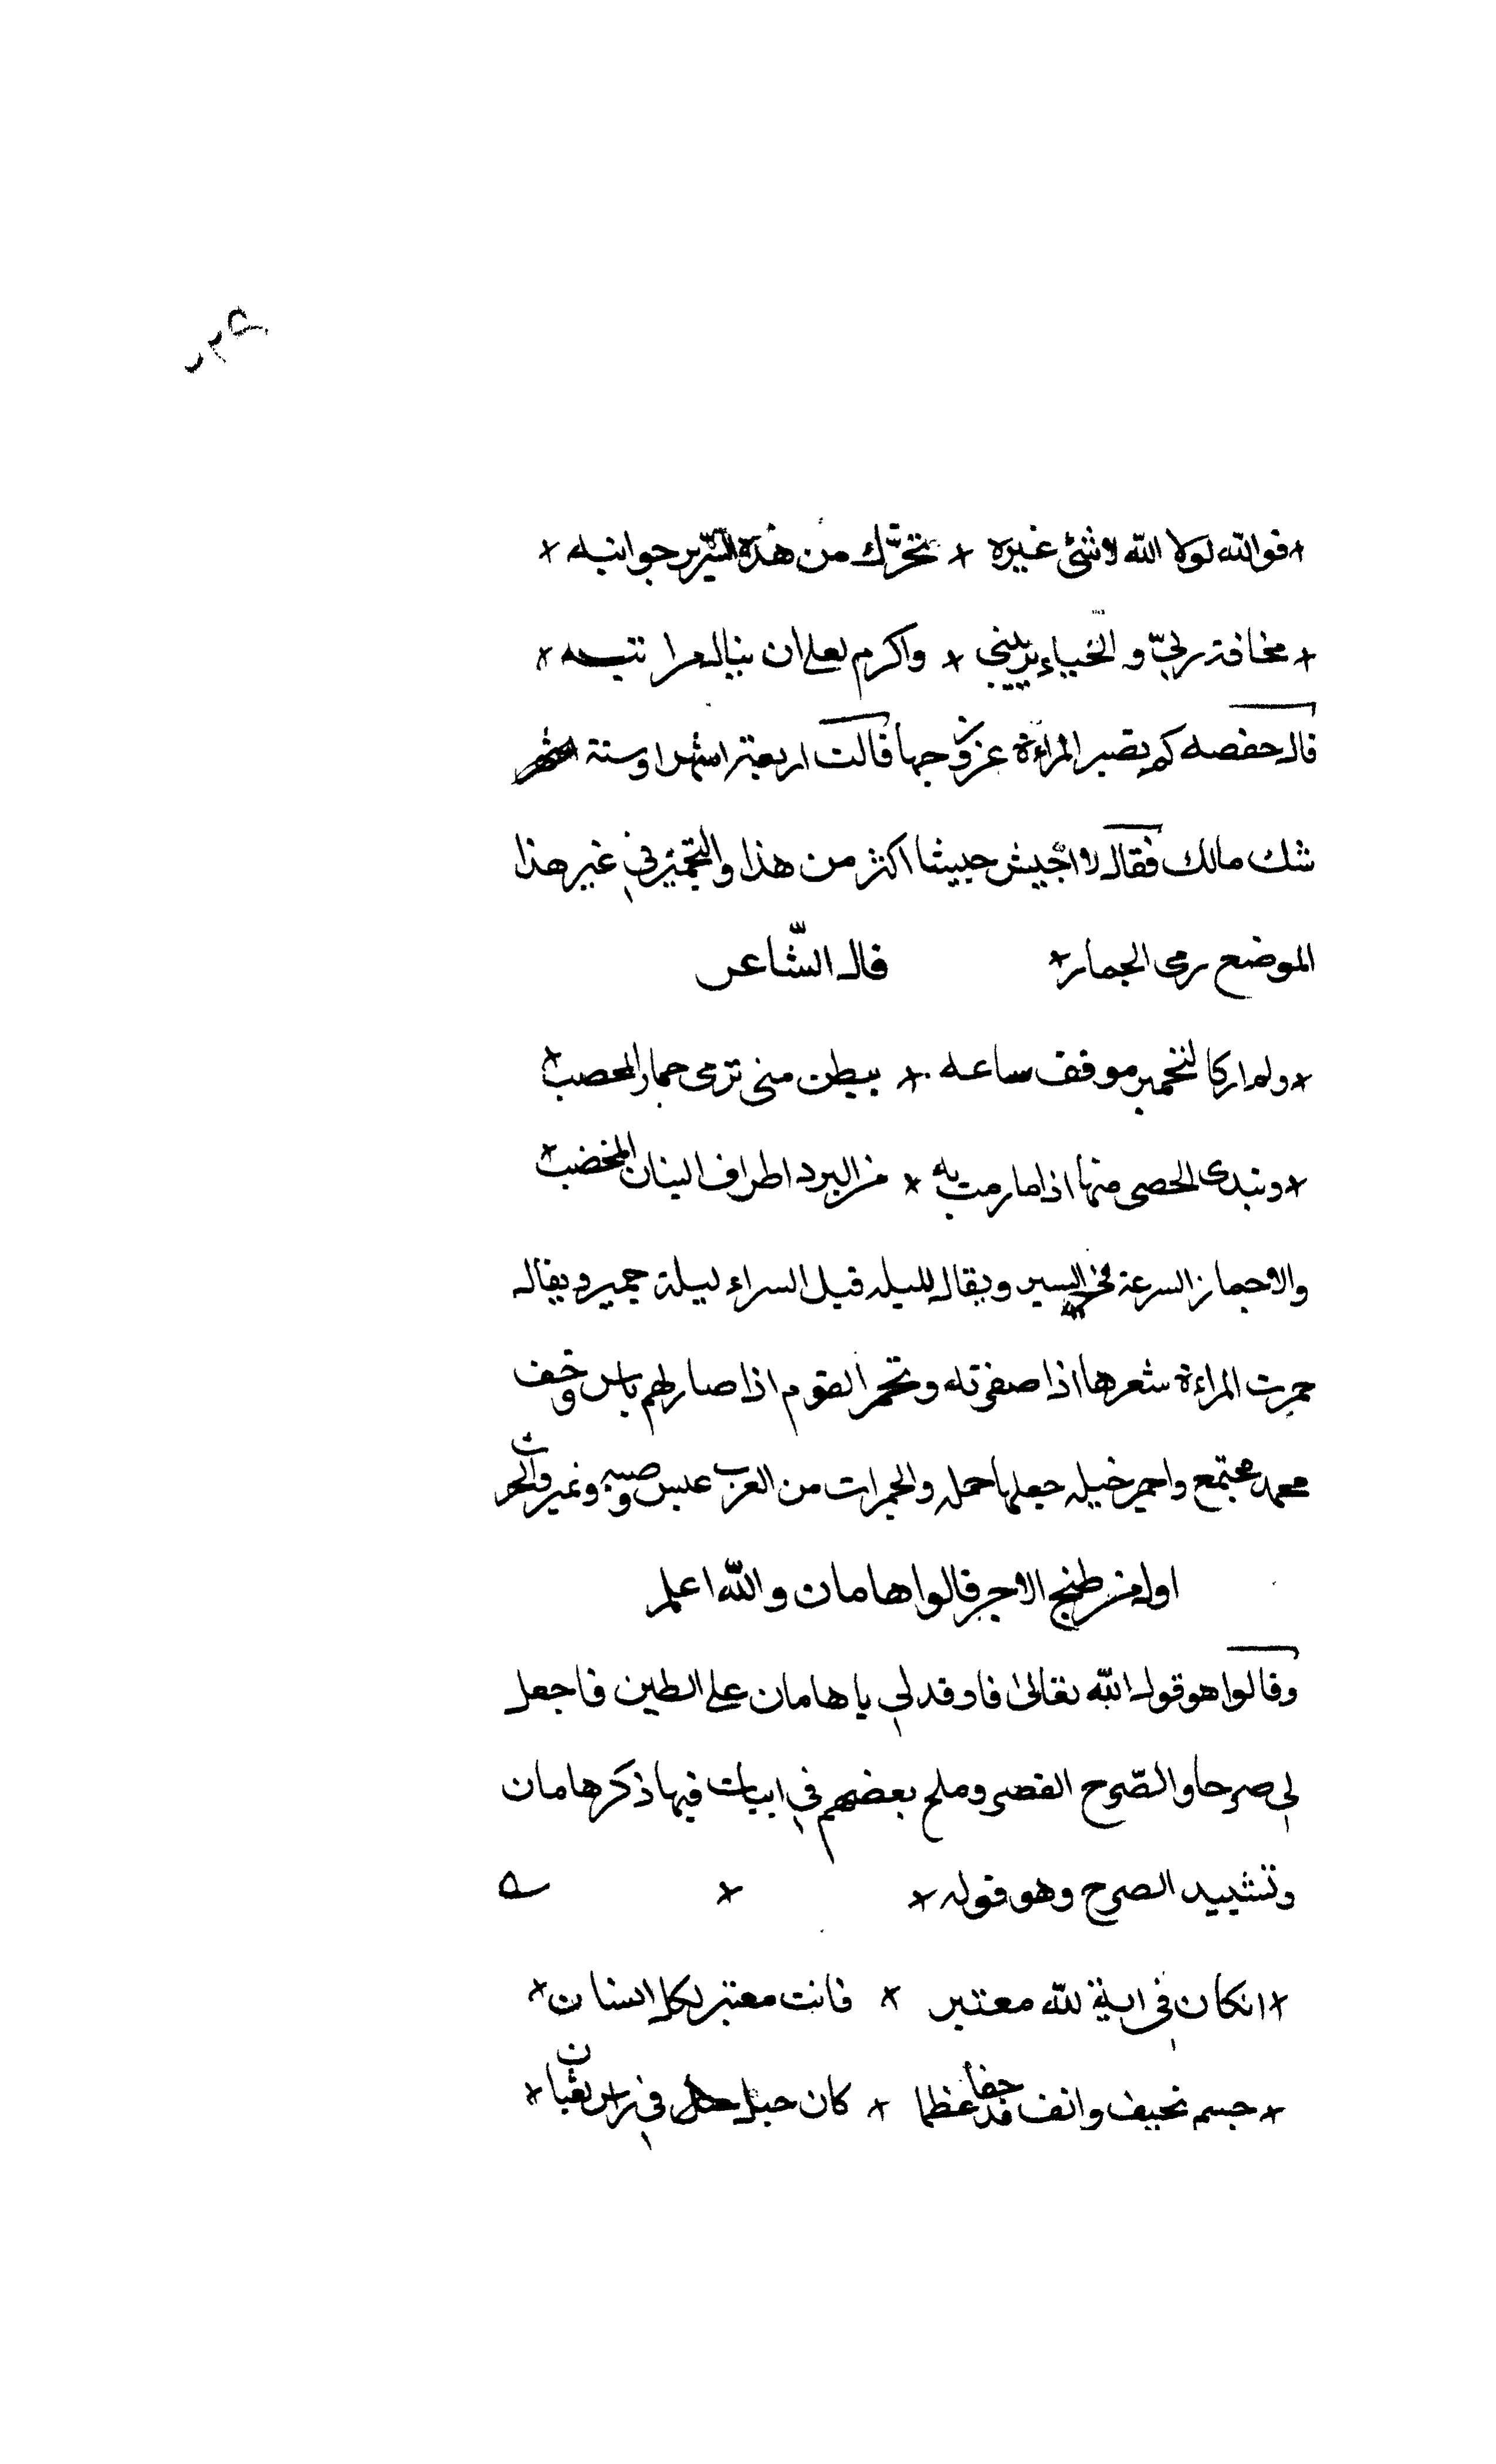 * فوالله لولا الله لا شئ غيره * تحرّك من هذه السّرير جوانبه *
* مخافة ربيّ و الحياء * واكرم بعلي ان ينال مراتبه *
قال حفصه كم تصبر المراءة عن زوجها قالت اربعة اشهر او ستة اشهر
شك مالك فقال لا اجيش جيشا اكثر من هذا والتجمير في غير هذا
الموضع رمى الجمار * قال الشّاعر
* ولم ار كالتجمير موقف ساعه * ببطن منى ترمى جمار المحصب *
* وتبدى الحصى منها اذا ما رمت به * من البرد اطراف البنان المخضب *
والاجماز السرعة في السير ويقال لليله قبل السراء ليلة جمير ويقال
جمرت المراءة شعرها اذا صفرته وتجمر القوم اذا صار لهم باس و
معهم مجتمع واجمر خيله جعلها جمله والجمرات من العرب عبس وضبه ونمير والحرث
اول من طبخ الاجر قالوا هامان والله اعلم
وقالوا هو قول الله تعالى فاوقد لي يا هامان على الطين فاجعل
لي صرحا والصّرح القصر وملح بعضهم في ابيات فيها ذكر هامان
وتشييد الصرح وهو قوله * * ه
* انكان في اية لله معتبر * فانت معتبر لكل انسان *
* جسم نحيف وانف قد جفا عظما * كان جبل في راس *